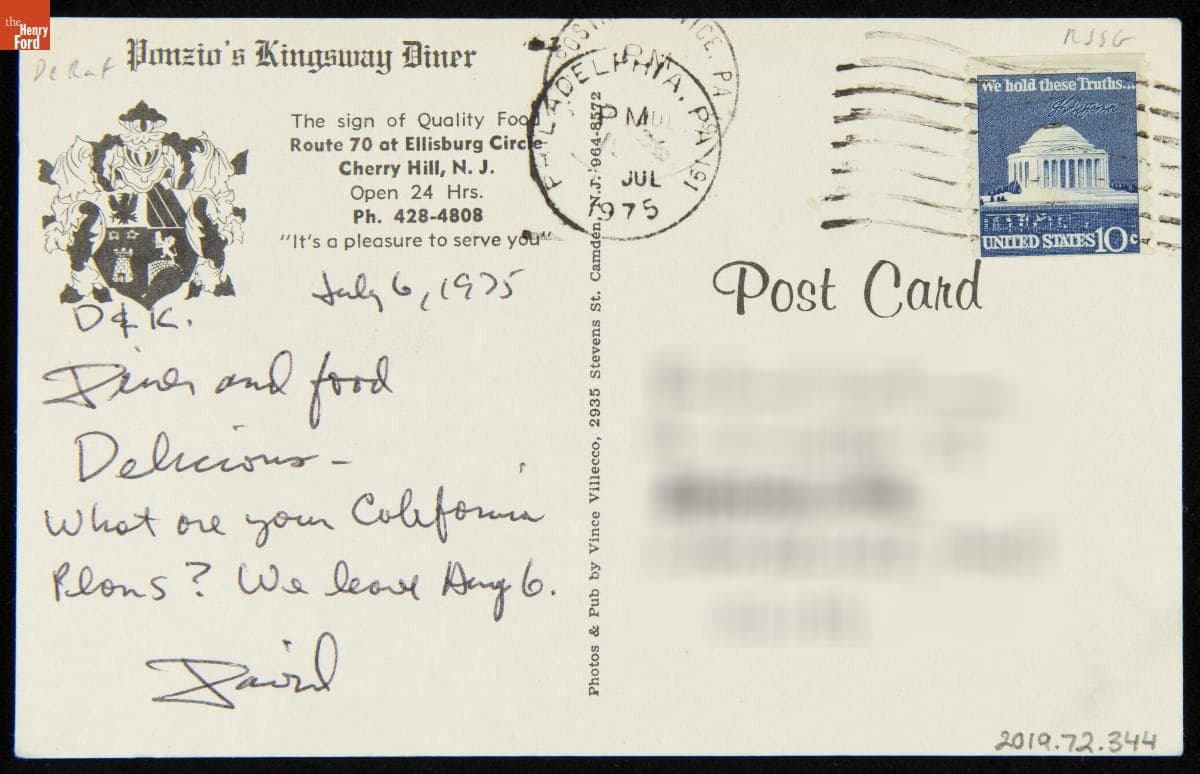 the
Henry
Ford
Ponzio's Kingsway Diner
The sign of Quality Food
Route 70 at Ellisburg Circle
Cherry Hill, N. J.
Open 24 Hrs.
Ph. 428-4808
"It's a pleasure to serve you"
July 6, 1975
D & K.
Diner and food
Delicious -
What are your California
Plans? We leave Aug 6.
David
Photos & Pub by Vince Villecco, 2935 Stevens St. Camden, N.J. 964-8572
PHILADELPHIA, PA 191
PM
JUL
1975
We hold these Truths...
UNITED STATES 10c
Post Card
2019.72.344